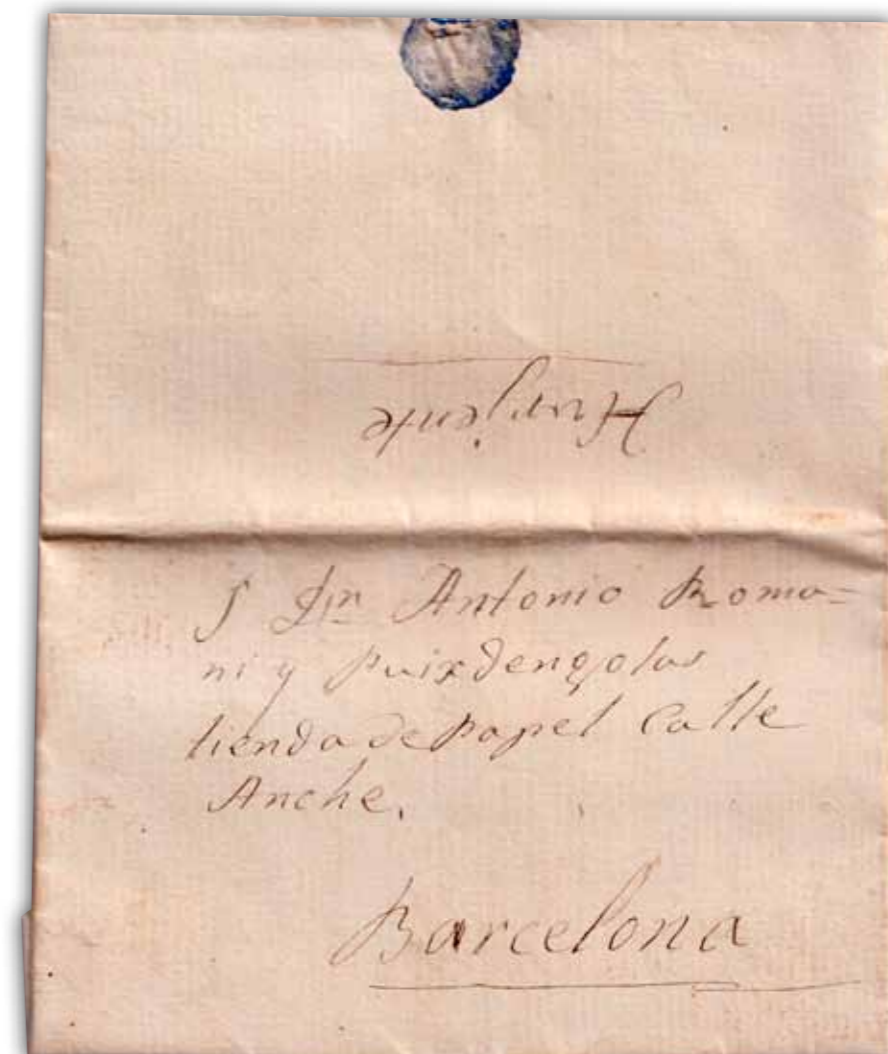 Hurjente
S Dn Antonio Roma=
ni y Puixdengolas
tienda de Papel Calle
Anche.
Barcelona